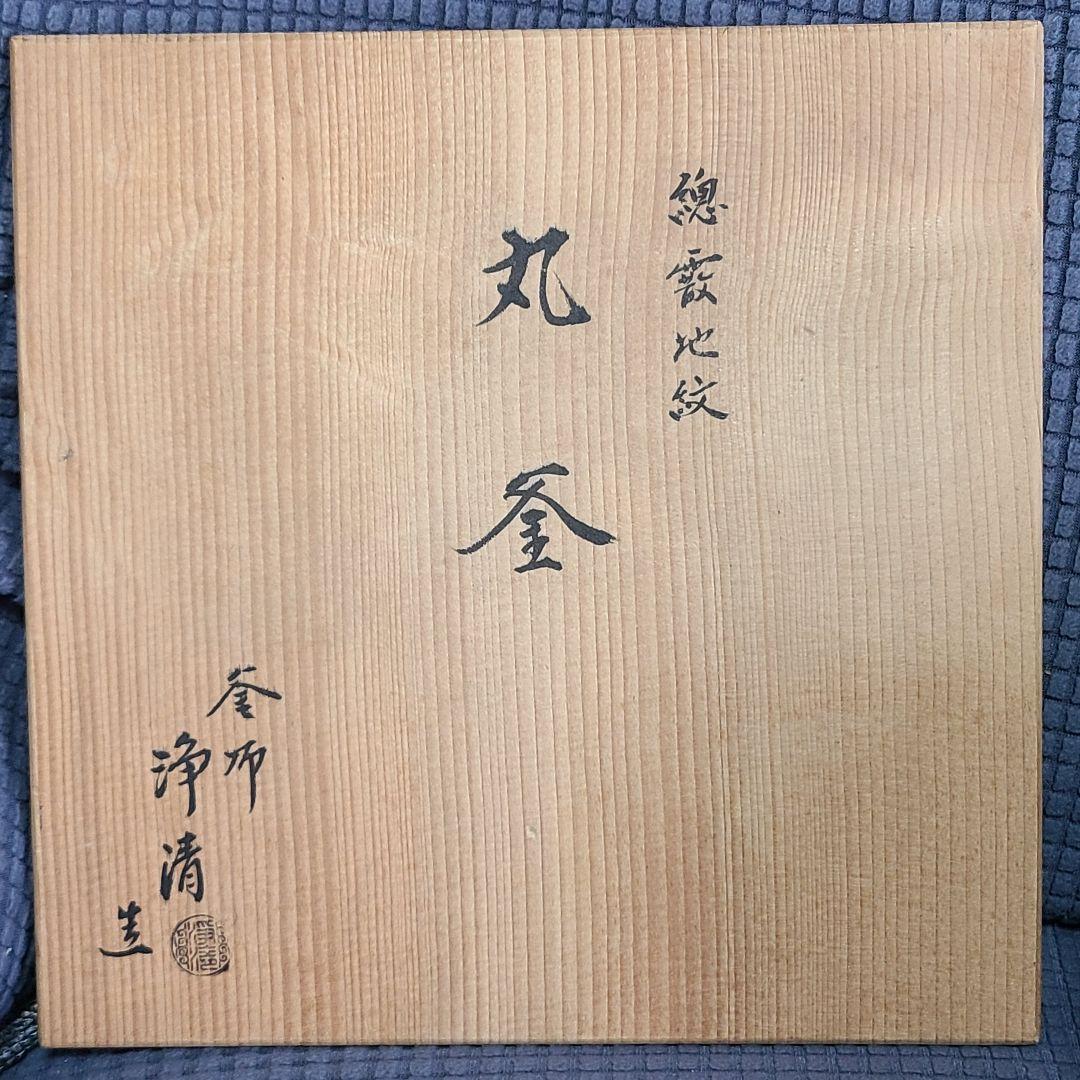 總霰地紋
丸釜
釜師
浄清
造